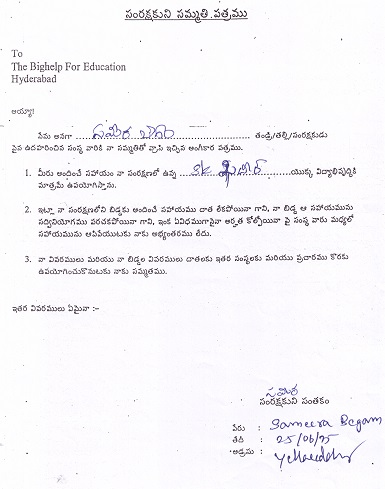 సంరక్షకుని సమ్మతి పత్రము
To
The Bighelp For Education
Hyderabad
అయ్యా!
నేను అనగా సమీర బేగం తండ్రి/తల్లి/సంరక్షకుడు
పైన ఉదహరించిన సంస్థ వారికి నా సమ్మతితో వ్రాసి ఇచ్చిన అంగీకార పత్రము.
1. మీరు అందించే సహాయం నా సంరక్షణలో ఉన్న యొక్క విద్యాభివృద్ధికి
మాత్రమే ఉపయోగిస్తాను.
2. ఇట్లా నా సంరక్షణలోని బిడ్డకు అందించే సహాయము దాత లేకపోయినా గాని, నా బిడ్డ ఆ సహాయమును
సద్వినియోగము పరచకపోయినా గాని, ఇంక ఏవిధముగానైనా అర్హత కోల్పోయినా పై సంస్థ వారు మధ్యలో
సహాయమును ఆపివేయుటకు నాకు అభ్యంతరము లేదు.
3. నా వివరములు మరియు నా బిడ్డల వివరములు దాతలకు ఇతర సంస్థలకు మరియు ప్రచారము కొరకు
ఉపయోగించుకొనుటకు నాకు సమ్మతము.
ఇతర వివరములు ఏమైనా :-
సమీర
సంరక్షకుని సంతకం
పేరు : Sameera Begam
తేదీ : 25/06/15
అడ్రసు : Yellareddy